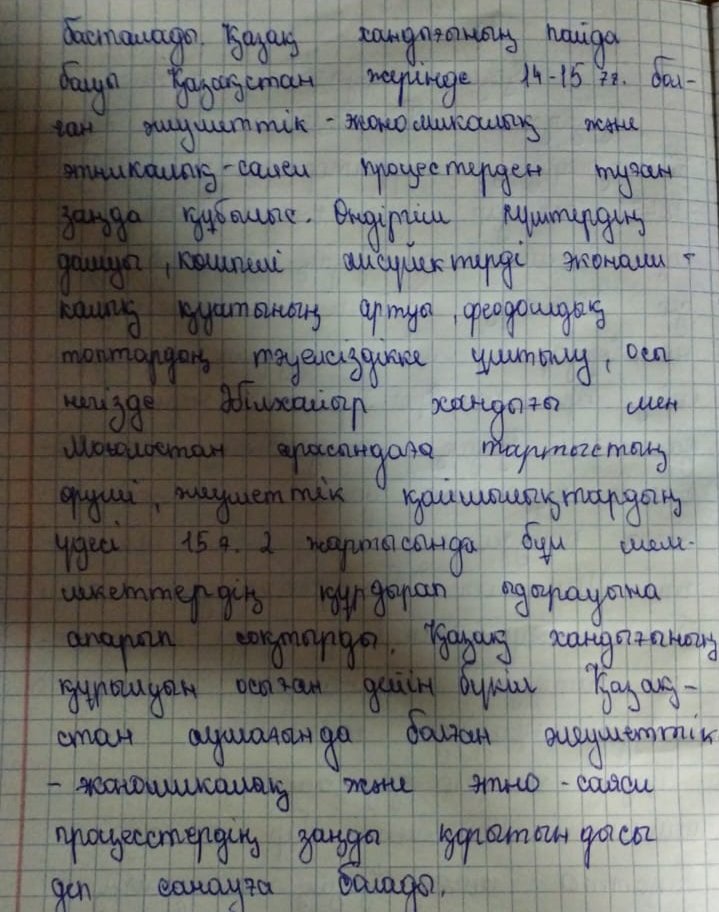 басталады. Қазақ хандығының пайда
болуы Қазақстан жерінде 14-15 ғғ. бол-
ған әлеуметтік-экономикалық және
этникалық-саяси процестерден туған
заңда құбылыс. Өндіргіш күштердің
дамуы, көшпелі ақсүйектерді экономи-
калық қуатының артуы, феодалдық
топтардың тәуелсіздікке ұмтылу, осы
негізде Әбілхайыр хандығы мен
Моғолостан арасындаға тартыстың
өршуі, әлеуметтік қайшылықтардың
үдесі 15 ғ. 2 жартысында бұл мем-
лекеттердің құрдырап ыдырауына
апарып соқтырды. Қазақ хандығының
құрылуын осыған дейін бүкіл Қазақ-
стан аумағында болған әлеуметтік
- экономикалық және этно-саяси
процесстердің заңды қорытындысы
деп санауға болады.